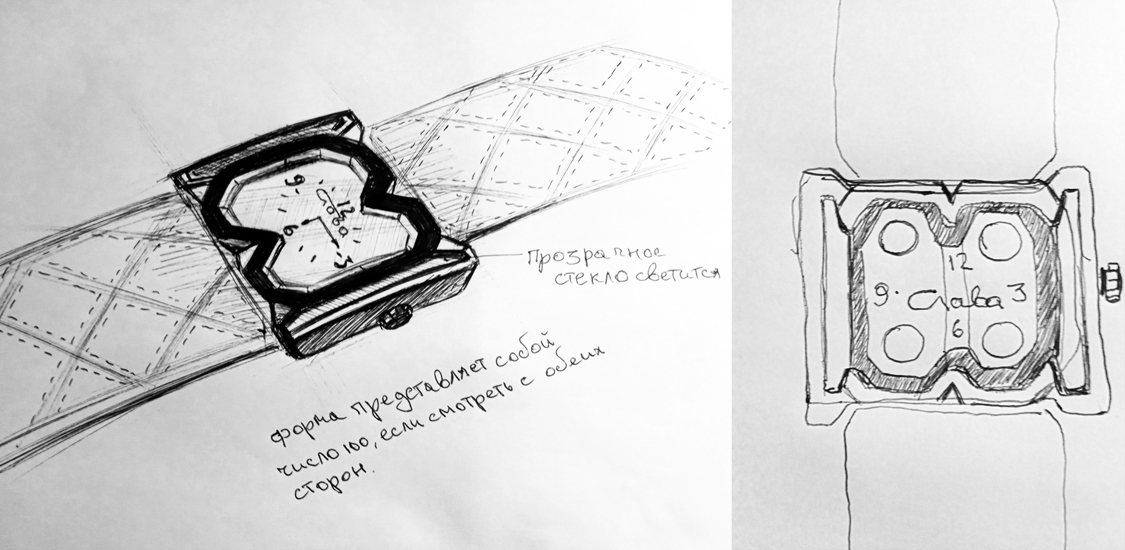 9 12
Слава
6 3
Прозрачное
стекло светится
форма представляет собой
число 100, если смотреть с обеих
сторон.
12
9. Слава 3
6